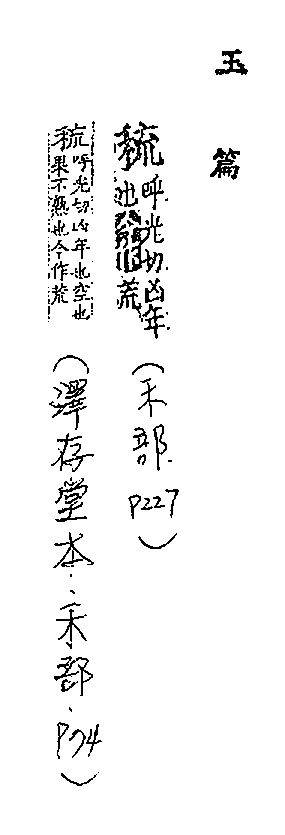 玉篇
𥞪呼光切凶年也荒(禾部P227)
𥞪呼光切凶年也空也果不熟也今作荒(澤存堂本·禾部·P74)